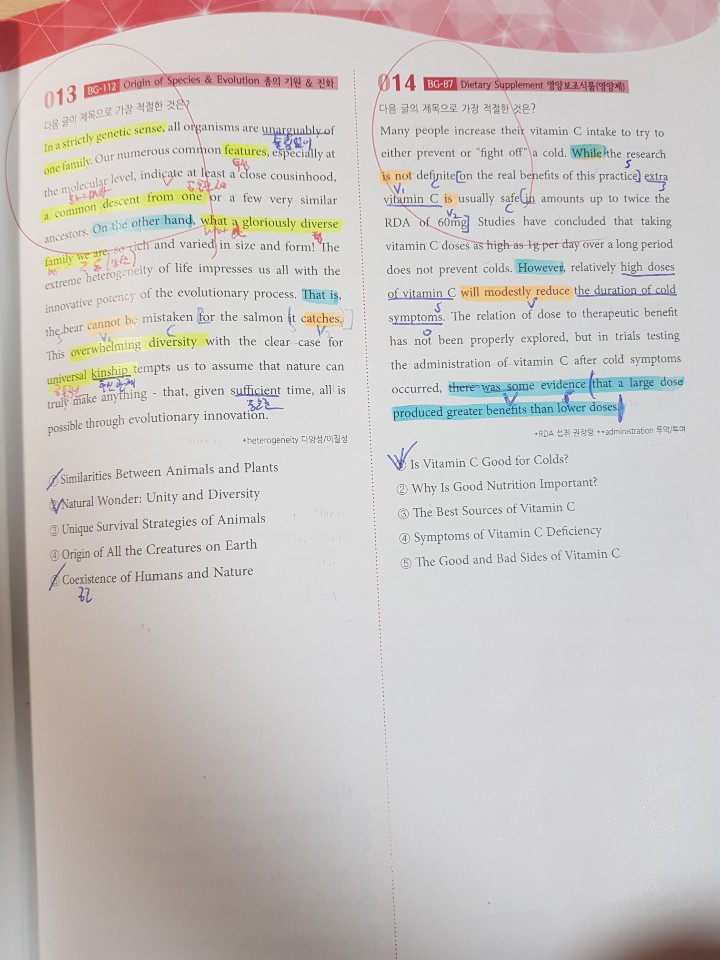 013 BG-112 Origin of Species & Evolution 종의 기원 & 진화
다음 글의 제목으로 가장 적절한 것은?
In a strictly genetic sense, all organisms are unarguably of
틀림없이
one family. Our numerous common features, especially at
특징
the molecular level, indicate at least a close cousinhood,
a common descent from one or a few very similar
ancestors. On the other hand, what a gloriously diverse
family we are, so rich and varied in size and form! The
extreme heterogeneity of life impresses us all with the
innovative potency of the evolutionary process. That is,
the bear cannot be mistaken for the salmon it catches.
S V C V
This overwhelming diversity with the clear case for
universal kinship tempts us to assume that nature can
truly make anything - that, given sufficient time, all is
충분한
possible through evolutionary innovation.
*heterogeneity 다양성/이질성
① Similarities Between Animals and Plants
② Natural Wonder: Unity and Diversity
③ Unique Survival Strategies of Animals
④ Origin of All the Creatures on Earth
⑤ Coexistence of Humans and Nature
공존
014 BG-87 Dietary Supplement 영양보조식품(영양제)
다음 글의 제목으로 가장 적절한 것은?
Many people increase their vitamin C intake to try to
either prevent or "fight off" a cold. While the research
S
is not definite on the real benefits of this practice, extra
V1 C S
vitamin C is usually safe in amounts up to twice the
V2 C
RDA of 60mg. Studies have concluded that taking
vitamin C doses as high as 1g per day over a long period
does not prevent colds. However, relatively high doses
of vitamin C will modestly reduce the duration of cold
S V
symptoms. The relation of dose to therapeutic benefit
O
has not been properly explored, but in trials testing
the administration of vitamin C after cold symptoms
occurred, there was some evidence that a large dose
V S
produced greater benefits than lower doses.
*RDA 섭취 권장량 **administration 투약/투여
① Is Vitamin C Good for Colds?
② Why Is Good Nutrition Important?
③ The Best Sources of Vitamin C
④ Symptoms of Vitamin C Deficiency
⑤ The Good and Bad Sides of Vitamin C